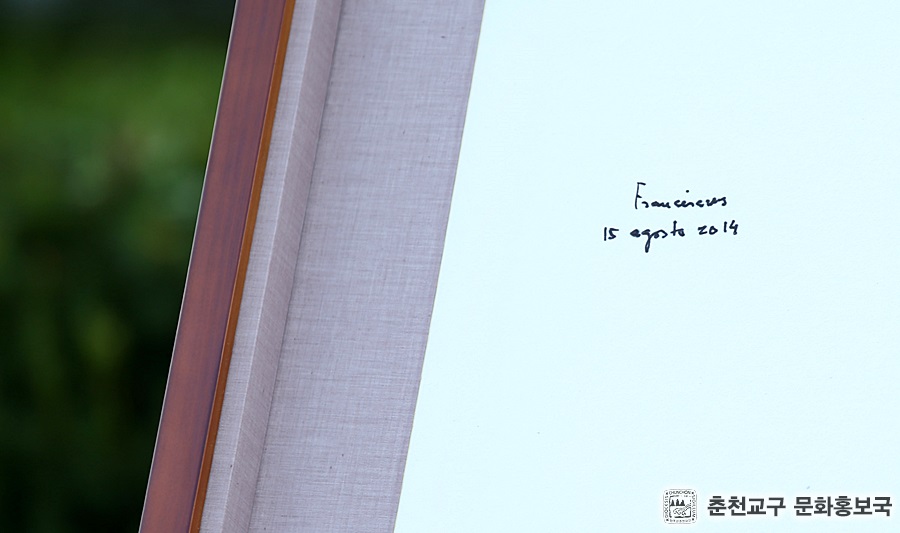 Franciscus
15 agosto 2014
춘천교구 문화홍보국